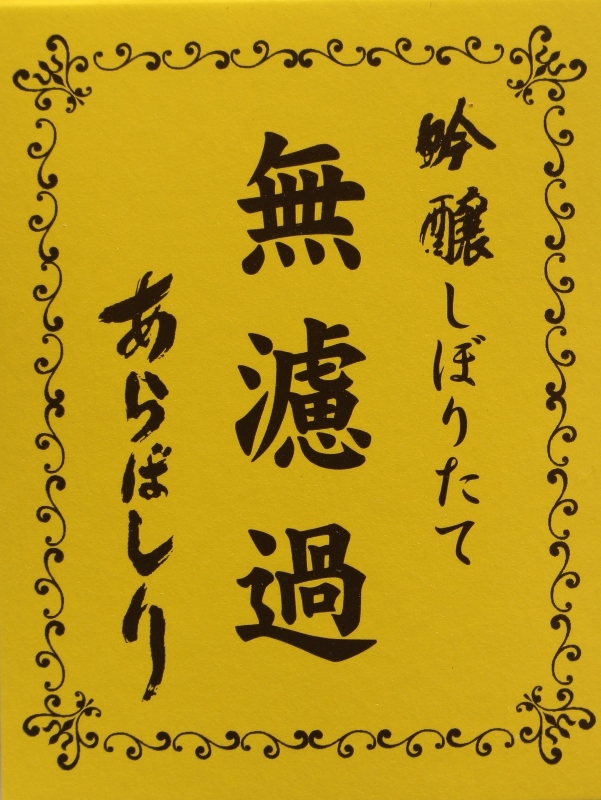 吟醸しぼりたて
無濾過
あらばしり